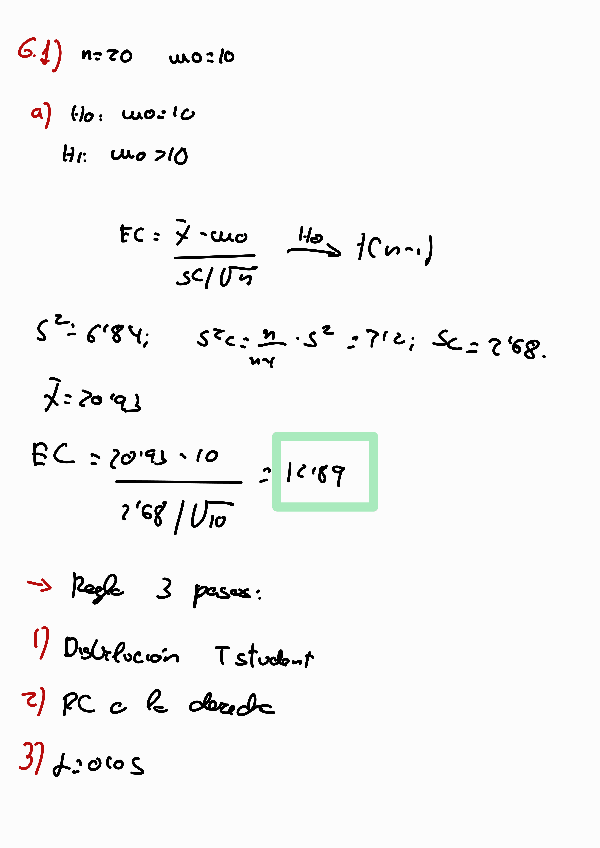 6.1) n=20 mo=10
a) Ho: mo=10
H1: mo>10
EC = x̄ - mo / sc/√n → Ho t(n-1)
s²=6'84; s²c = n/n-1 · s² = 7'2; sc = 2'68.
x̄=20'93
EC = 20'93 - 10 / 2'68/√10 = 12'89
→ Regla 3 pasos:
1) Distribución T student
2) RC a la derecha
3) α=0'05